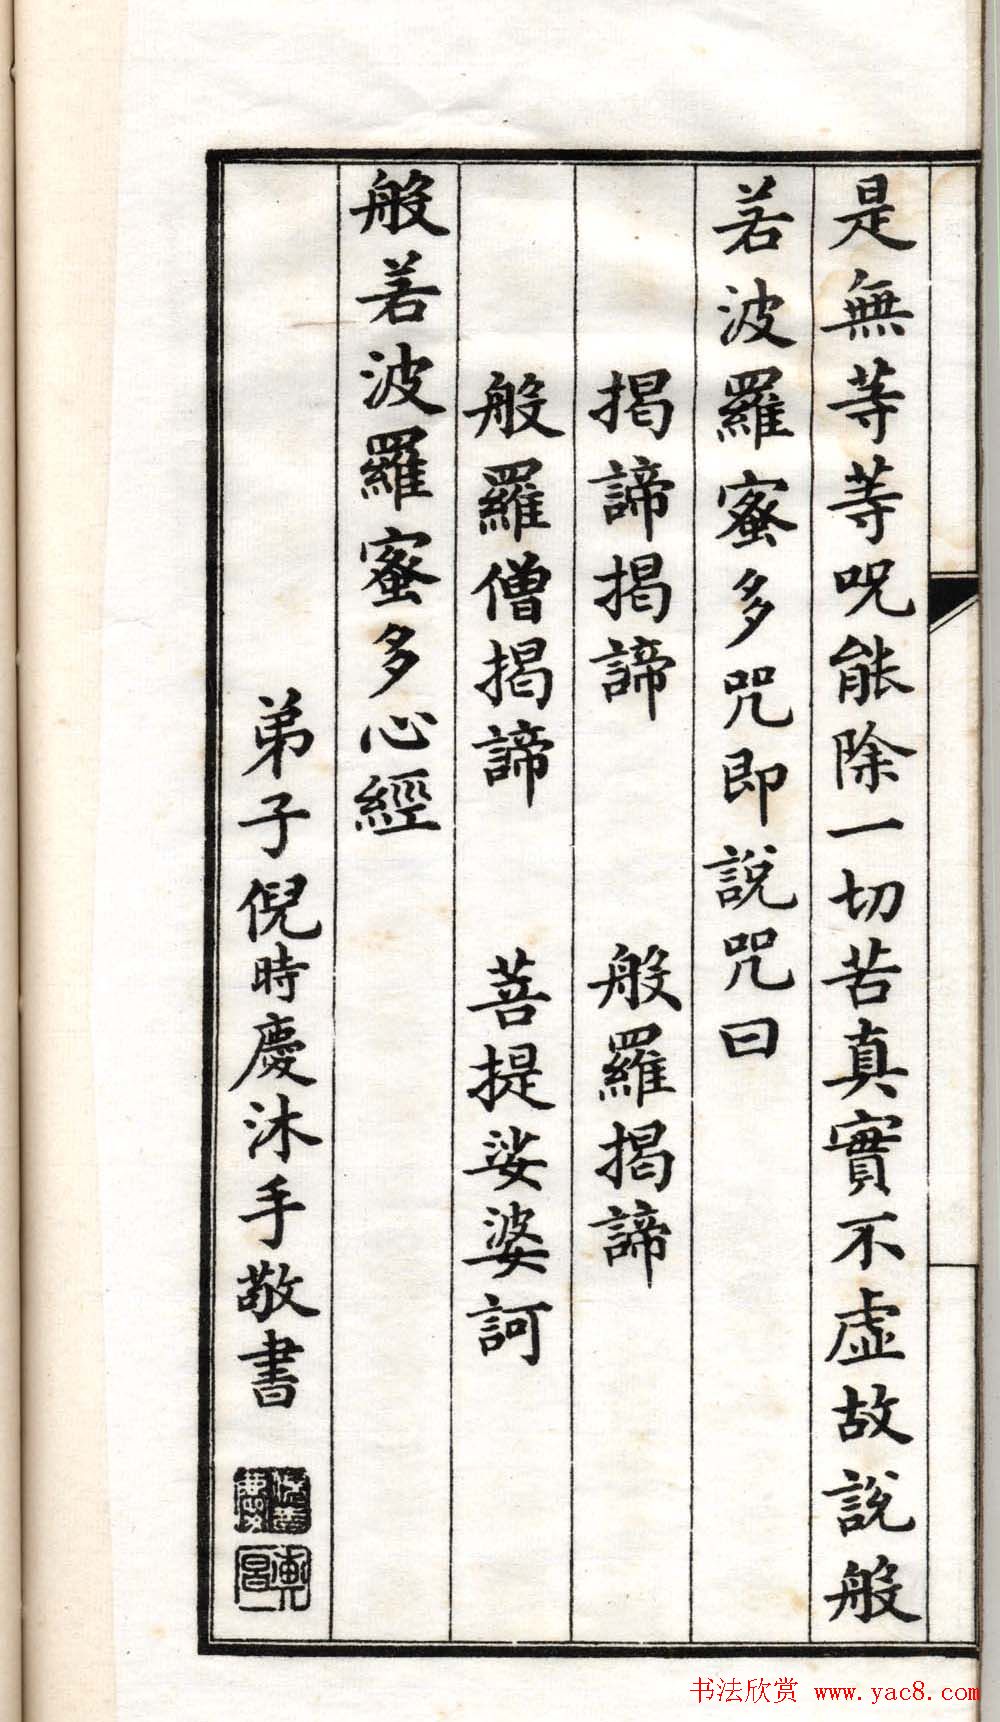 是無等等呪能除一切苦真實不虛故說般
若波羅蜜多咒即說咒曰
揭諦揭諦 般羅揭諦
般羅僧揭諦 菩提娑婆訶
般若波羅蜜多心經
弟子倪時慶沐手敬書
书法欣赏 www.yac8.com